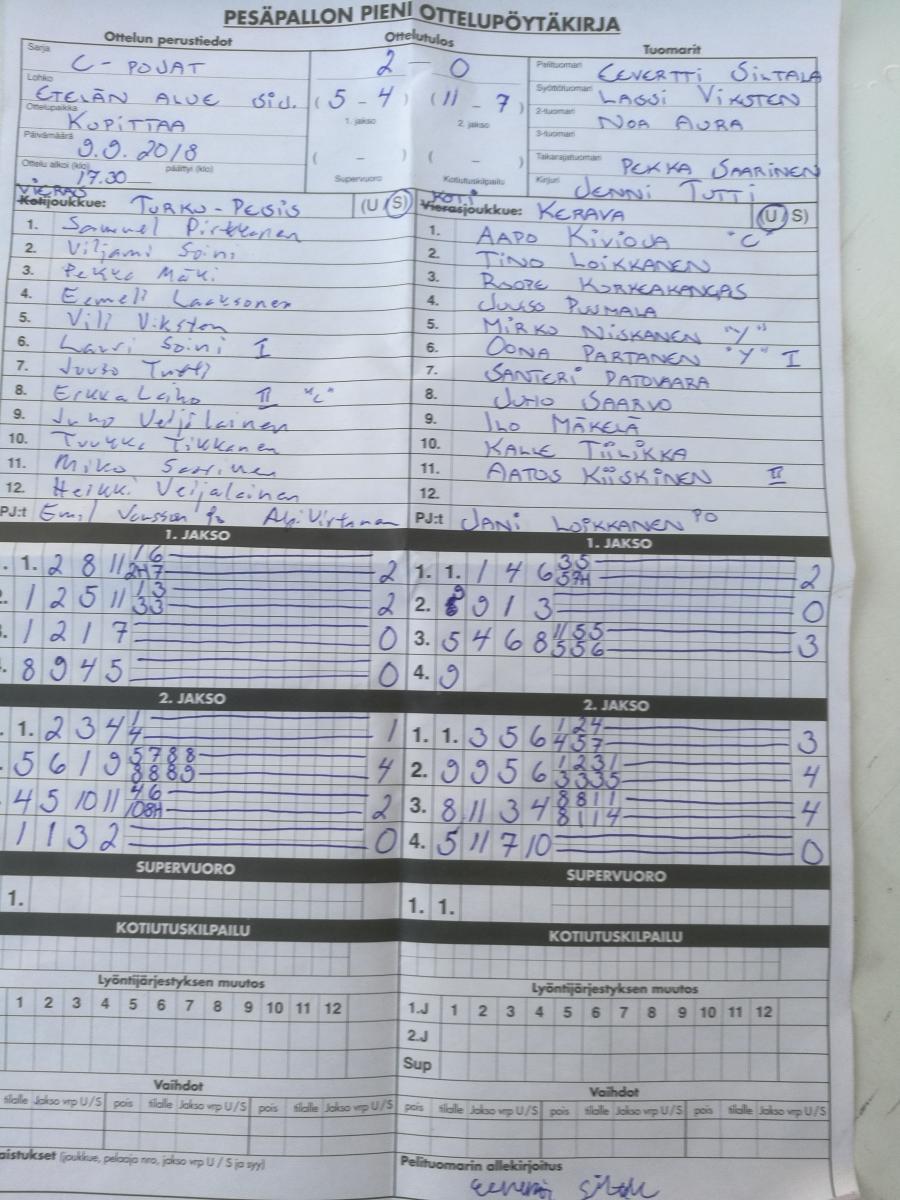 PESÄPALLON PIENI OTTELUPÖYTÄKIRJA
Ottelun perustiedot
Ottelutulos
Tuomarit
Sarja
C-POJAT
2 - 0
Pelituomari EEVERTTI SILTALA
Lohko
ETELÄN ALUE SIJ.
(5 - 4) (11 - 7)
Syöttötuomari LASSI VIKSTEN
Ottelupaikka KUPITTAA
1. jakso 2. jakso
2-tuomari NOA AURA
3-tuomari
Päivämäärä 9.9.2018
( - ) ( - )
Takarajatuomari PEKKA SAARINEN
Ottelu alkoi (klo) 17.30 päättyi (klo)
Supervuoro Kotiutuskilpailu
Kirjuri JENNI TUTTI
VIERAS
KOTI
Kotijoukkue: TURKU-PESIS (U / S)
Vierasjoukkue: KERAVA (U / S)
1. Samuel Pirkkanen
1. AAPO KIVIOJA "C"
2. Viljami Soini
2. TINO LOIKKANEN
3. Pekka Mäki
3. ROOPE KORKEAKANGAS
4. Eemeli Laaksonen
4. JUUSO PUUMALA
5. Vili Viksten
5. MIRKO NISKANEN "Y"
6. Lauri Soini I
6. OONA PARTANEN "Y" I
7. Juuso Tutti
7. SANTERI PATOVAARA
8. Erkka Leiho II "C"
8. JUHO SAARVO
9. Juho Veijalainen
9. ILO MÄKELÄ
10. Tuukka Tikkanen
10. KALLE TIILIKKA
11. Miko Saarinen
11. AATOS KIISKINEN II
12. Heikki Veijalainen
12.
PJ:t Emil Jansson Alpi Virtanen
PJ:t JANI LOIKKANEN PO
1. JAKSO
1. JAKSO
1. 2 8 11 16 2H7 2
1. 1. 1 4 6 35 57H 2
1 2 5 11 13 33 2
2. 9 1 3 0
1 2 1 7 0
3. 5 4 6 8 1155 556 3
8 9 4 5 0
4. 9
2. JAKSO
2. JAKSO
1. 2 3 4 1 4 1
1. 1. 3 5 6 124 457 3
5 6 1 9 5788 8889 4
2. 9 9 5 6 1231 3335 4
4 5 10 11 46 108H 2
3. 8 11 3 4 8811 8114 4
1 1 3 2 0
4. 5 11 7 10 0
SUPERVUORO
SUPERVUORO
1.
1. 1.
KOTIUTUSKILPAILU
KOTIUTUSKILPAILU
Lyöntijärjestyksen muutos
Lyöntijärjestyksen muutos
1 2 3 4 5 6 7 8 9 10 11 12
1.J 1 2 3 4 5 6 7 8 9 10 11 12
2.J
Sup
Vaihdot
Vaihdot
tilalle Jakso vrp U/S pois tilalle Jakso vrp U/S pois tilalle Jakso vrp U/S
pois tilalle Jakso vrp U/S pois tilalle Jakso vrp U/S pois tilalle Jakso vrp U/S
aistukset (joukkue, pelaaja nro, jakso vrp U / S ja syy)
Pelituomarin allekirjoitus